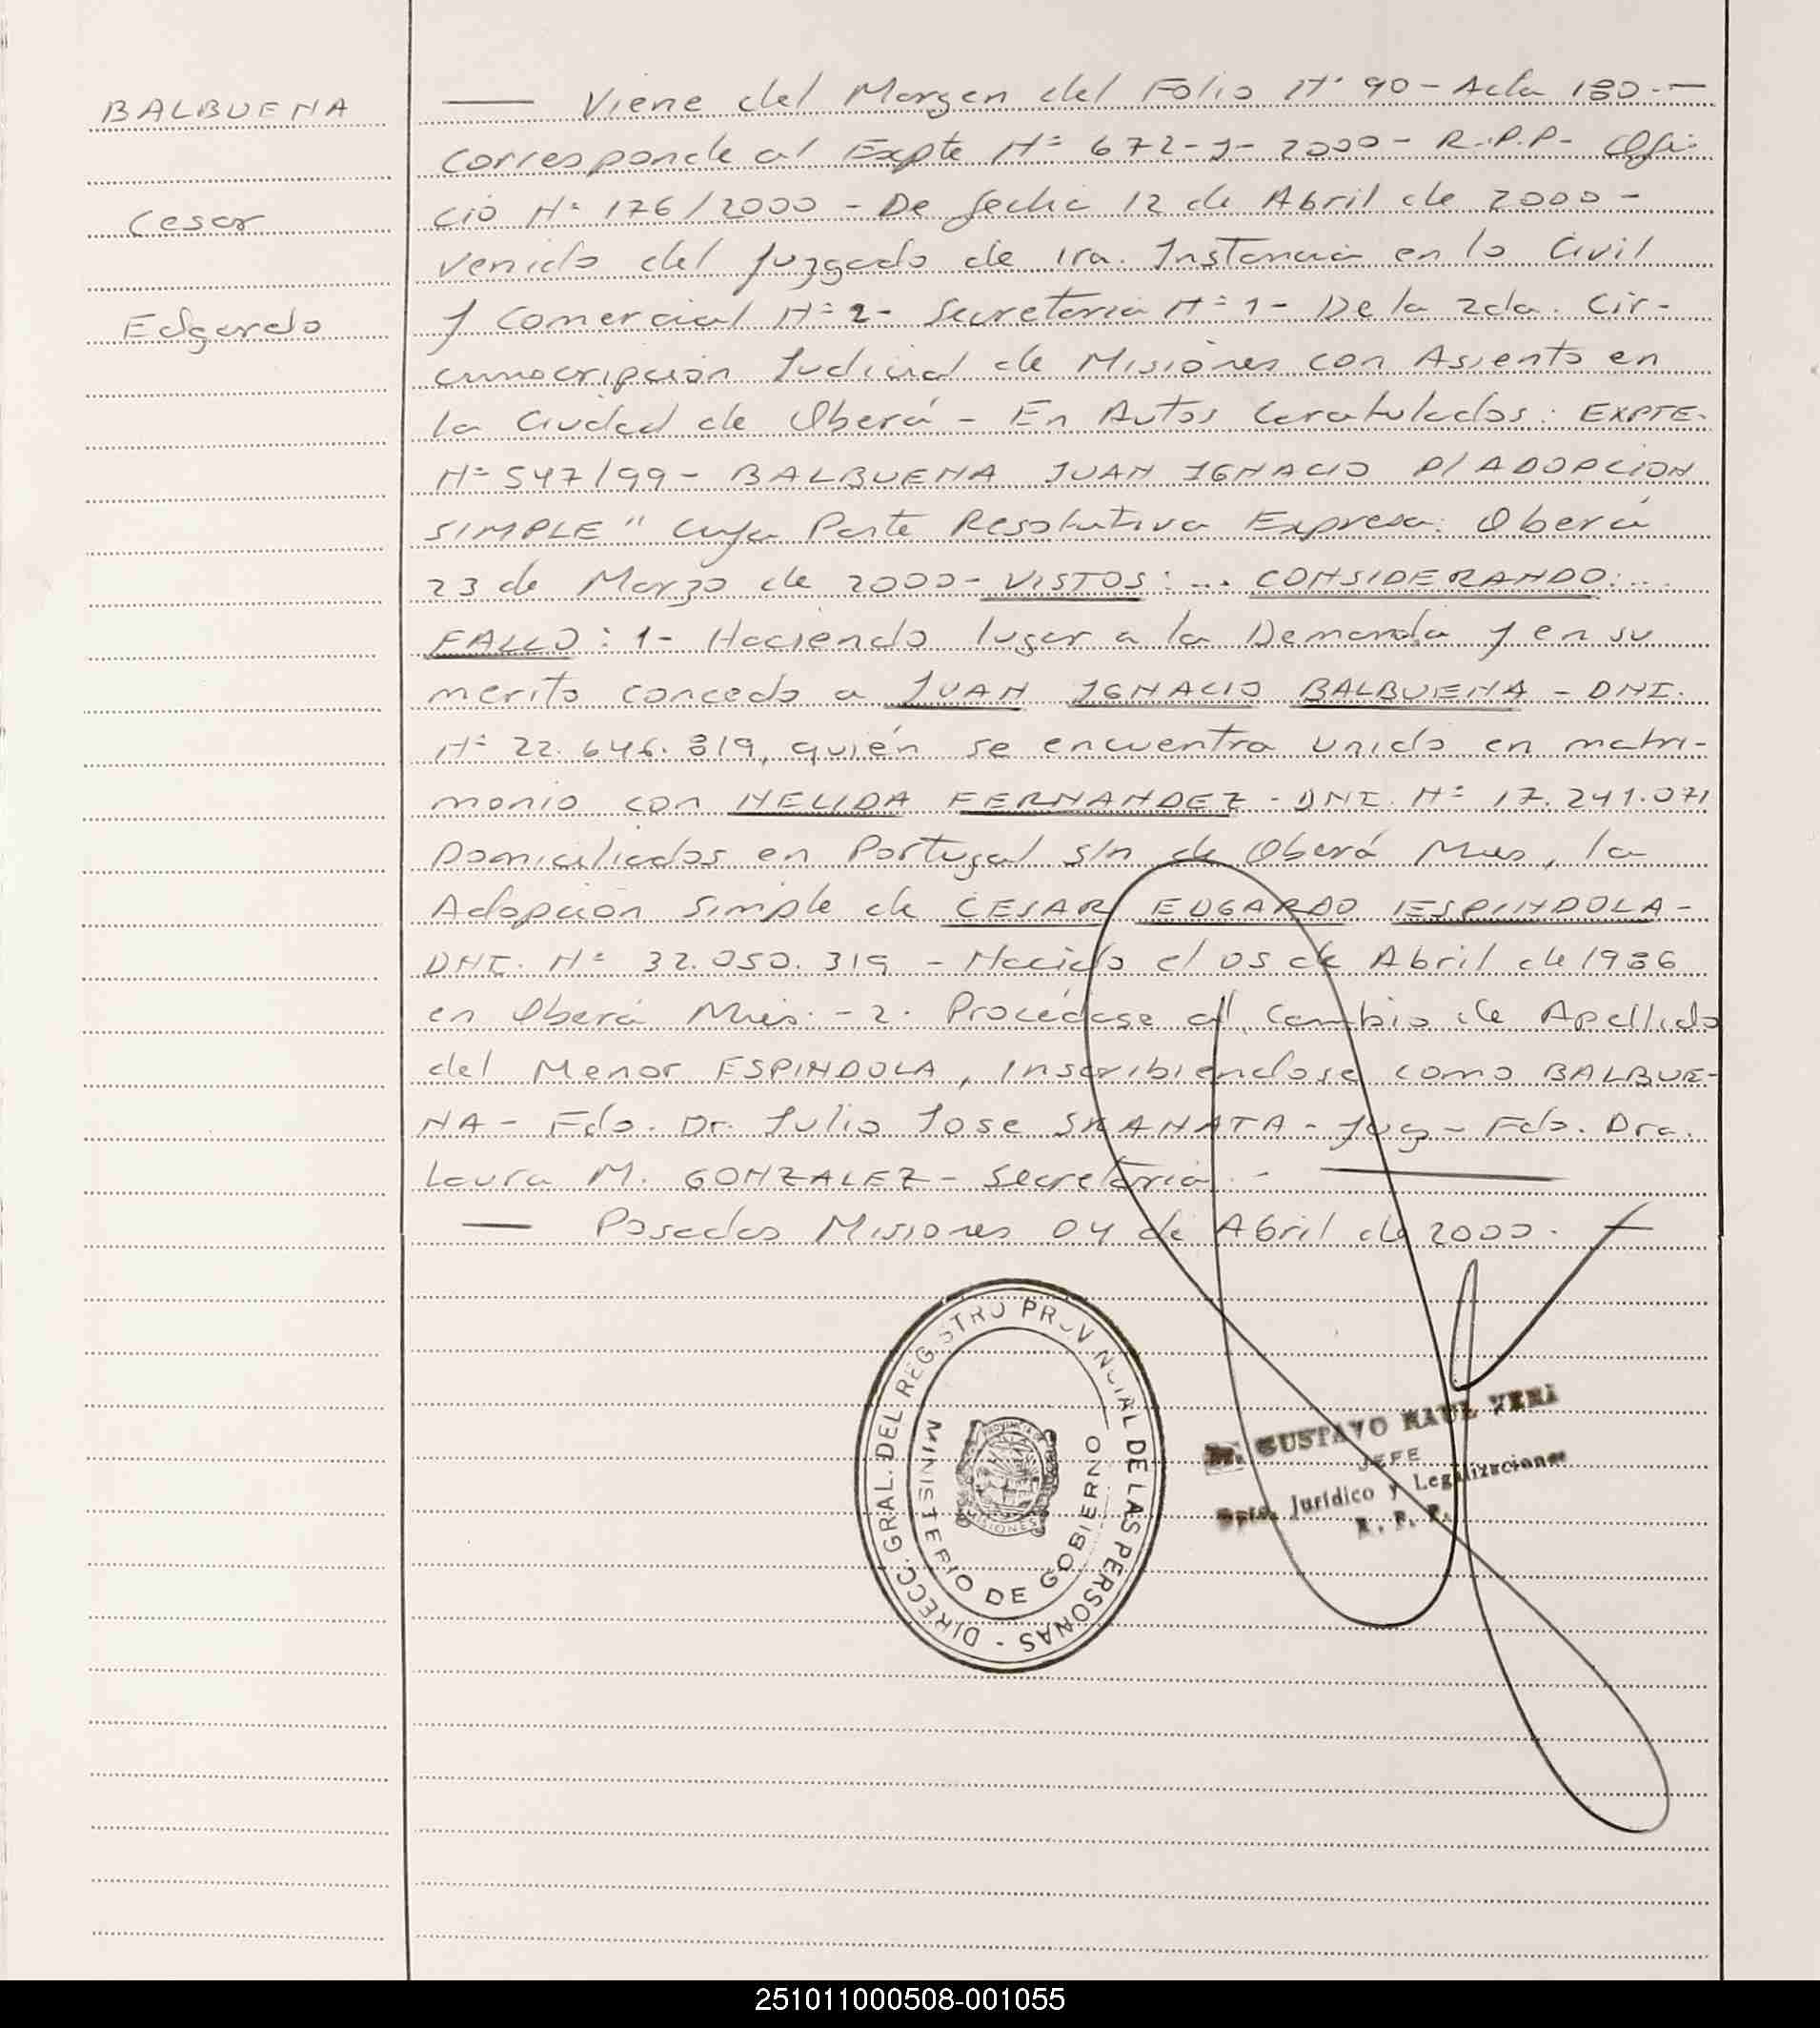 BALBUENA
Cesar
Edgardo
—— Viene del Margen del Folio Nº 90 - Acta 180.-—
corresponde al Expte Nº 672-J-2000- R.P.P- Ofi-
cio Nº 176/2000 - De fecha 12 de Abril de 2000 -
venido del Juzgado de 1ra. Instancia en lo Civil
y Comercial Nº 2- Secretaria Nº 1- De la 2da. Cir-
cunscripcion Judicial de Misiones con Asiento en
la Ciudad de Oberá - En Autos Caratulados: EXPTE.
Nº 547/99- BALBUENA JUAN IGNACIO P/ ADOPCION
SIMPLE" cuya Parte Resolutiva Expresa: Oberá
23 de Marzo de 2000- VISTOS: ... CONSIDERANDO: ...
FALLO: 1- Haciendo lugar a la Demanda y en su
merito concedo a JUAN IGNACIO BALBUENA - DNI.
Nº 22.646.819, quién se encuentra unido en matri-
monio con NELIDA FERNANDEZ - DNI. Nº 17.241.071
Domiciliados en Portugal s/n de Oberá Mnes, la
Adopcion Simple de CESAR EDGARDO ESPINDOLA -
DNI. Nº 32.050.319 - Nacido el 05 de Abril de 1986
en Oberá Mnes. - 2. Procédase al Cambio de Apellido
del Menor ESPINDOLA, Inscribiendose como BALBUE-
NA - Fdo. Dr. Julio Jose SKANATA - Juez - Fdo. Dra.
Laura M. GONZALEZ - Secretaria. - ——
—— Posadas Misiones 04 de Abril de 2000. —
DIRECC. GRAL. DEL REGISTRO PROVINCIAL DE LAS PERSONAS -
MINISTERIO DE GOBIERNO
PROVINCIA DE
MISIONES
Dr. GUSTAVO RAUL VERA
JEFE
Dpto. Jurídico y Legalizaciones
R. P. P.
251011000508-001055